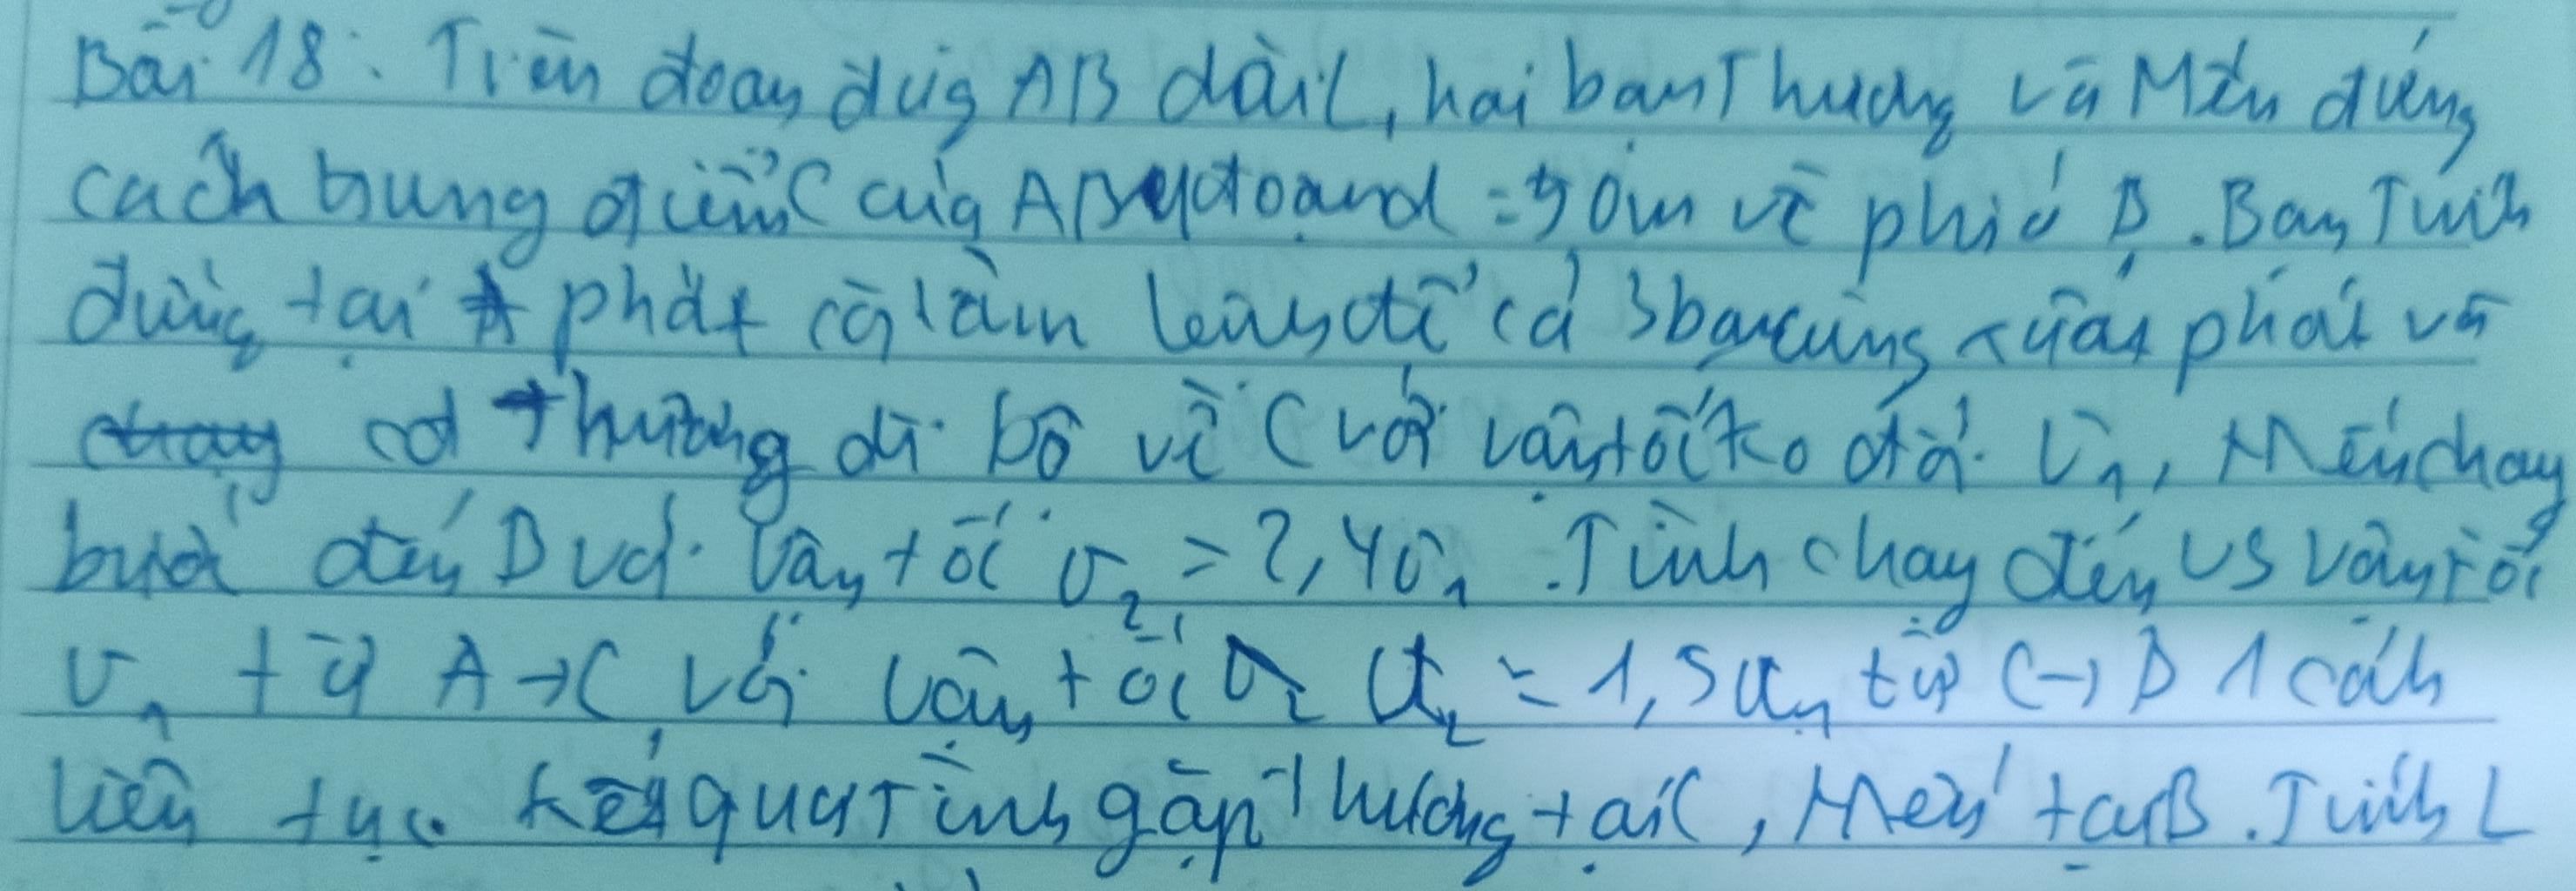 Bài 18: Trên đoạn đường AB dài L, hai bạn Thương và Mến đứng
cách trung điểm C của AB một đoạn d = 50m về phía B. Bạn Tình
đứng tại A phát cờ làm lệnh để cả 3 bạn cùng xuất phát và
có Thương đi bộ về C với vận tốc ko đổi v₁, Mến chạy
bước đến B với vận tốc v₂ = 2,4v₁. Tình chạy đến vs vận tốc
u₁ từ A → C với vận tốc u₂ = 1,5u₁ từ C → B 1 cách
liên tục. Kết quả Tình gặp Thương tại C, Mến tại B. Tính L